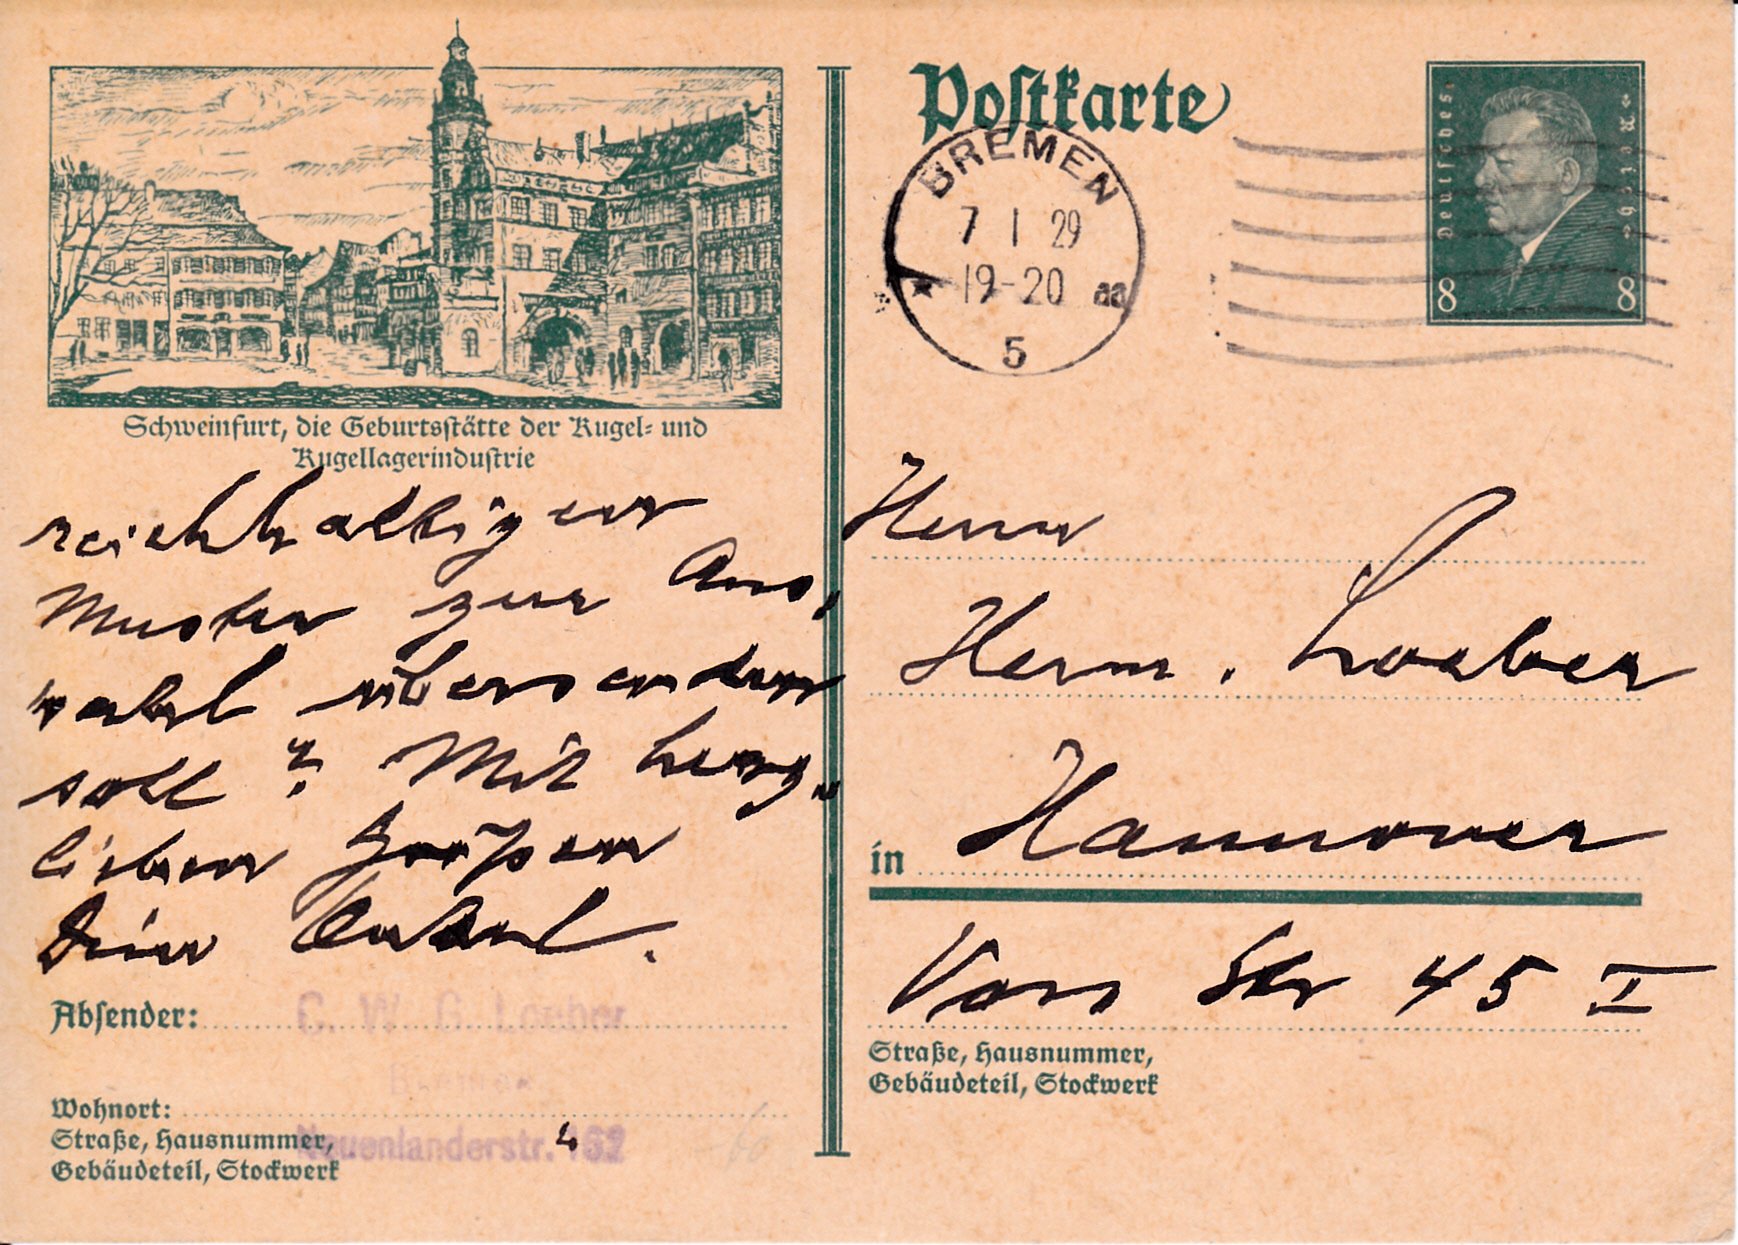 Schweinfurt, die Geburtsstätte der Kugel- und
Kugellagerindustrie
reichhaltiger
Muster zur Aus-
wahl übersenden
soll? Mit herz-
lichen Grüßen
Dein Onkel.
Absender:
C. W. G. Loeber
Bremen
Wohnort:
Straße, Hausnummer,
Neuenlanderstr.
Gebäudeteil, Stockwerk
Postkarte
BREMEN
7 1 29
19-20 aa
5
Deutsches Reich
8 8
Herrn
Herm. Loeber
in Hannover
Str 45 I
Straße, Hausnummer,
Gebäudeteil, Stockwerk